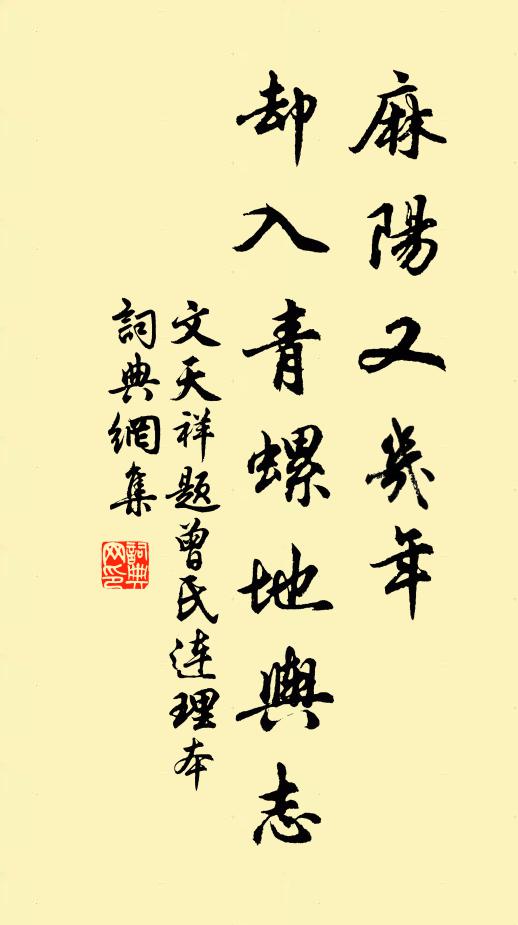 麻陽又幾年
却入青螺地輿志
文天祥題曾氏連理本
詞典網集
詞典網印